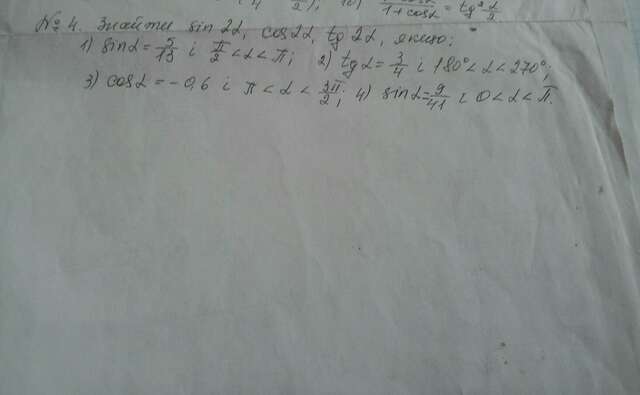 1+cosα = tg² α/2
№ 4. Знайти sin 2α, cos 2α, tg 2α, якщо:
1) sin α = 5/13 і π/2 < α < π; 2) tg α = 3/4 і 180° < α < 270°;
3) cos α = -0,6 і π < α < 3π/2; 4) sin α = 9/41 і 0 < α < π.